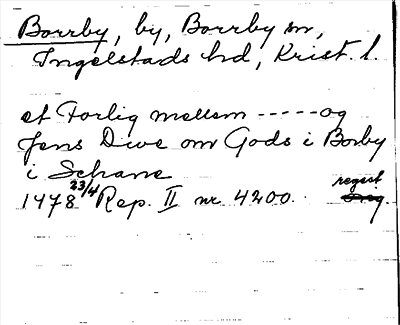 Borrby, by, Borrby sn,
Ingelstads hd, Krist. l.
et Forlig mellem -----og
Jens Dwe om Gods i Borby
i Schane
1478 23/4 Rep. II nr 4200. regist